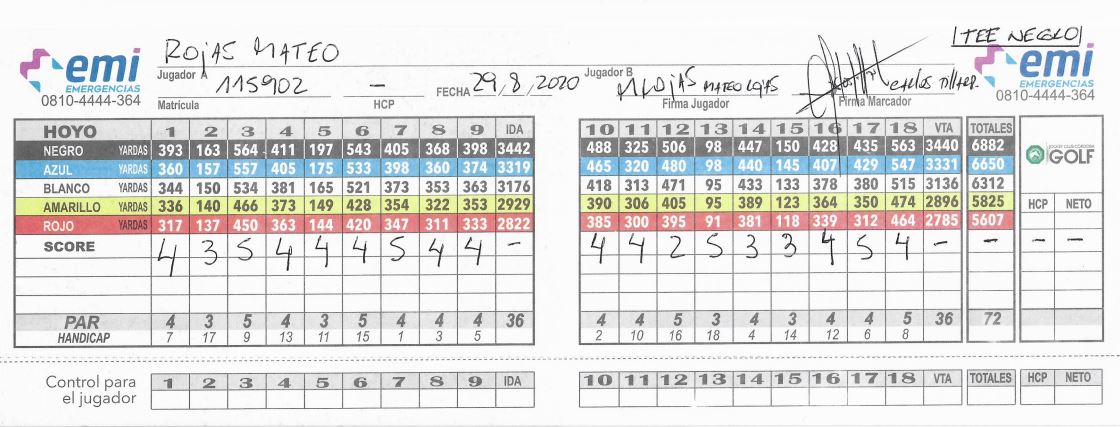 ROJAS MATEO
|TEE NEGRO|
emi
EMERGENCIAS
0810-4444-364
Jugador A
115902
-
FECHA 29/8/2020
Matrícula
HCP
Jugador B
Firma Jugador
Firma Marcador
emi
EMERGENCIAS
0810-4444-364
HOYO 1 2 3 4 5 6 7 8 9 IDA
NEGRO YARDAS 393 163 564 411 197 543 405 368 398 3442
AZUL YARDAS 360 157 557 405 175 533 398 360 374 3319
BLANCO YARDAS 344 150 534 381 165 521 373 353 363 3176
AMARILLO YARDAS 336 140 466 373 149 428 354 322 353 2929
ROJO YARDAS 317 137 450 363 144 420 347 311 333 2822
SCORE 4 3 5 4 4 4 5 4 4 -
PAR 4 3 5 4 3 5 4 4 4 36
HANDICAP 7 17 9 13 11 15 1 3 5
10 11 12 13 14 15 16 17 18 VTA TOTALES
488 325 506 98 447 150 428 435 563 3440 6882
465 320 480 98 440 145 407 429 547 3331 6650
418 313 471 95 433 133 378 380 515 3136 6312
390 306 405 95 389 123 364 350 474 2896 5825
385 300 395 91 381 118 339 312 464 2785 5607
4 4 2 5 3 3 4 5 4 - - - -
4 4 5 3 4 3 4 4 5 36 72
2 10 16 18 4 14 12 6 8
JOCKEY CLUB CORDOBA
GOLF
HCP NETO
Control para
el jugador
1 2 3 4 5 6 7 8 9 IDA
10 11 12 13 14 15 16 17 18 VTA TOTALES HCP NETO